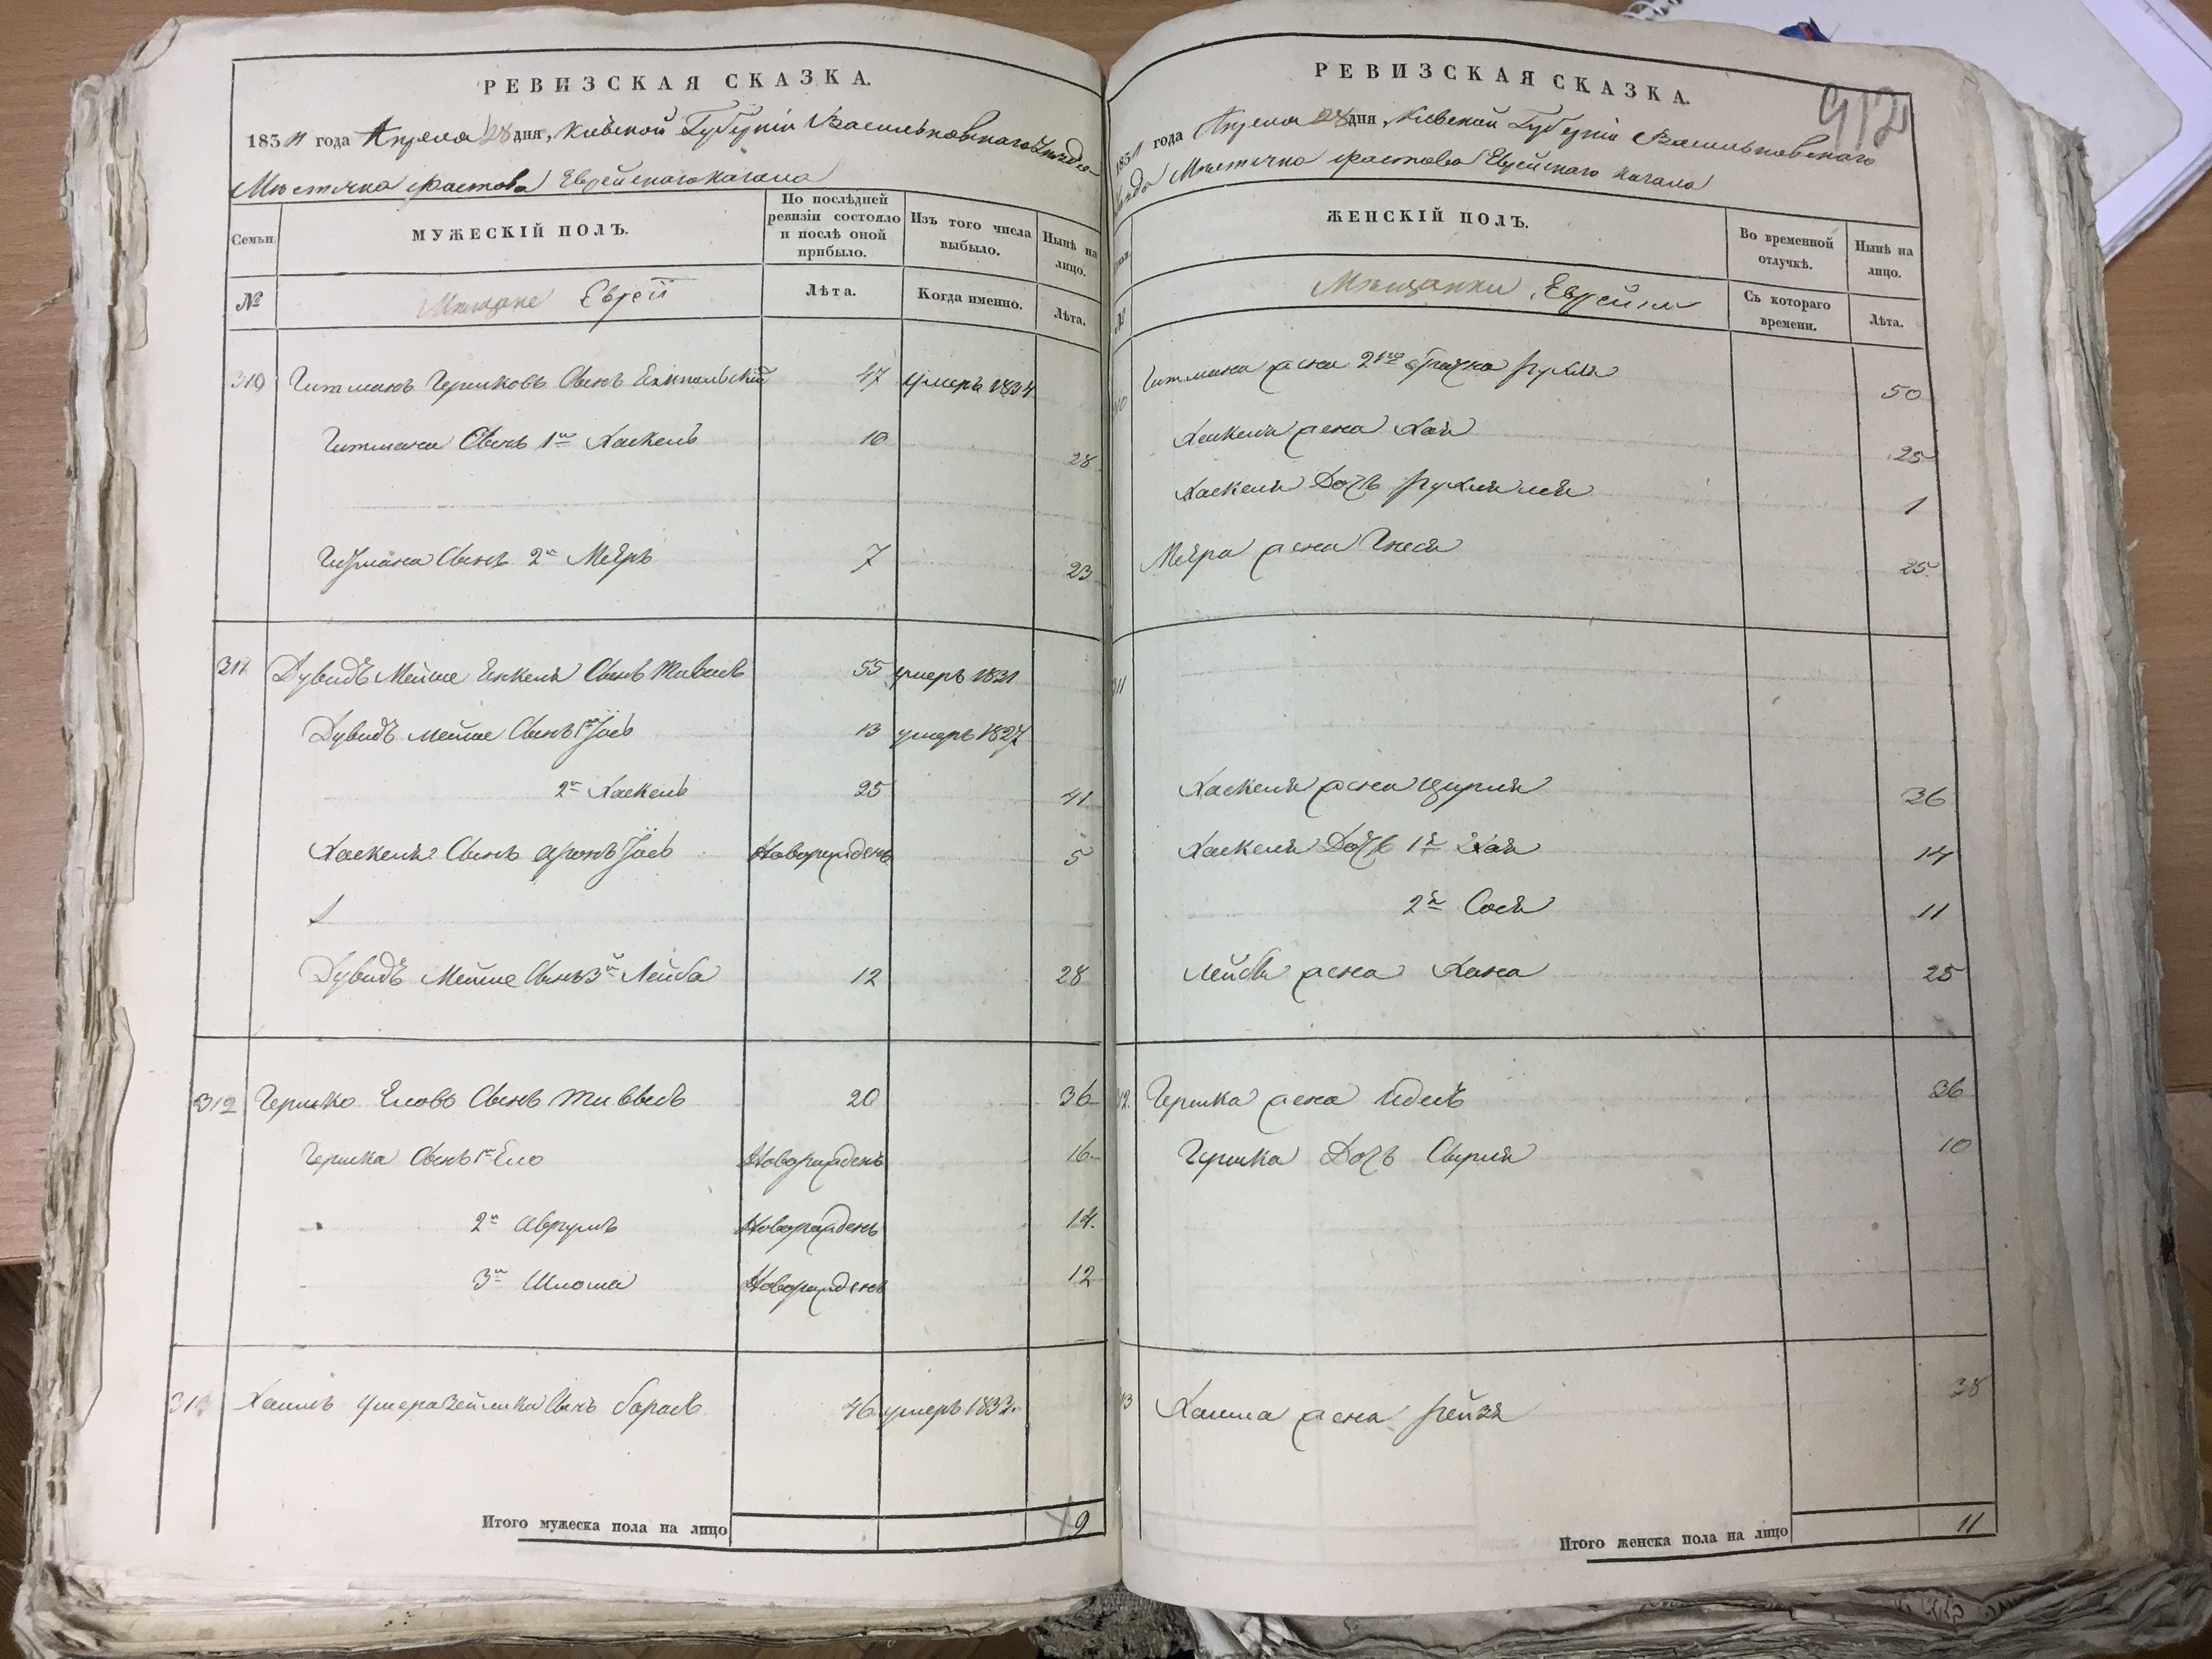 РЕВИЗСКАЯ СКАЗКА.
1834 года Апреля 28 дня, Кіевской Губерніи Васильковского Уезда
Местечка Фастова Еврейского Кагала
Семьи.
МУЖЕСКІЙ ПОЛЪ.
По послѣдней ревизіи состояло и послѣ оной прибыло.
Изъ того числа выбыло.
Нынѣ на лицо.
№
Мещане Евреи
Лѣта.
Когда именно.
Лѣта.
310 Гитманъ Гершковъ Сынъ 47 умеръ 1834
Гитмана Сынъ 1й Хаскель 10 28
Гитмана Сынъ 2й Меяръ 7 23
311 Дувидъ Мейше Енкеля Сынъ 55 умеръ 1831
Дувидъ Мейше Сынъ 1й Іось 13 умеръ 1827
2й Хаскель 25 41
Хаскеля Сынъ Аронъ Іось Новорожденъ 5
Дувидъ Мейше Сынъ 3й Лейба 12 28
312 Гершко Еловъ Сынъ 20 36
Гершка Сынъ 1й Ело Новорожденъ 16
2й Аврумъ Новорожденъ 14
3й Шлома Новорожденъ 12
313 Хаимъ Сынъ 46 умеръ 1832.
Итого мужеска пола на лицо 9
РЕВИЗСКАЯ СКАЗКА.
912
1834 года Апреля 28 дня, Кіевской Губерніи Васильковского
Уезда Местечка Фастова Еврейского Кагала
ЖЕНСКІЙ ПОЛЪ.
Во временной отлучкѣ.
Нынѣ на лицо.
№
Мещанки Еврейки
Съ котораго времени.
Лѣта.
310 Гитмана жена 2го брака Рухля 50
Хаскеля жена Хая 25
Хаскеля Дочь 1
Меяра жена Гнеся 25
311
Хаскеля жена Цирля 36
Хаскеля Дочь 1я Хая 14
2я Сося 11
Лейбы жена Хана 25
312. Гершка жена Идесь 36
Гершка Дочь Сырля 10
313 Хаима жена Рейзя 38
Итого женска пола на лицо 11